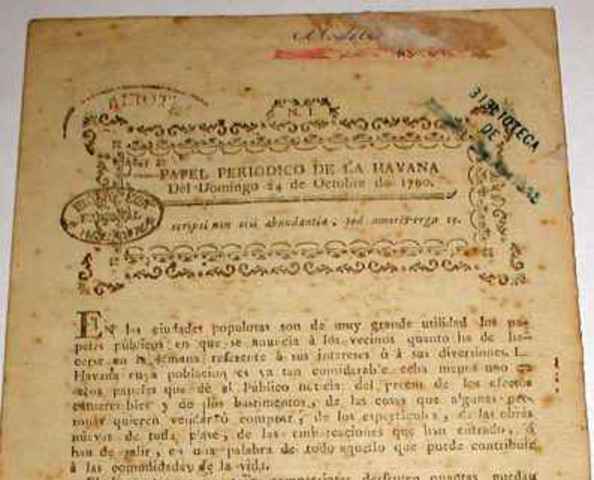 N. I
PAPEL PERIODICO DE LA HAVANA
Del Domingo 24 de Octubre de 1790.
scripsi non otii abundantia, sed amoris erga te.
BIBLIOTECA
DE
EN las ciudades populosas son de muy grande utilidad los pa-
peles públicos en que se anuncia á los vecinos quanto ha de ha-
cerse en la semana referente á sus intereses ó á sus diversiones. L
Havana cuya poblacion es ya tan considerable echa menos uno
papeles que dé al Público noticia del precio de los efectos
comerciables y de los bastimentos, de las cosas que algunas per-
sonas quieren vender ó comprar, de los espectáculos, de las obras
nuevas de toda clase, de las embarcaciones que han entrado, ó
han de salir, en una palabra de todo aquello que puede contribuir
á las comodidades de la vida.